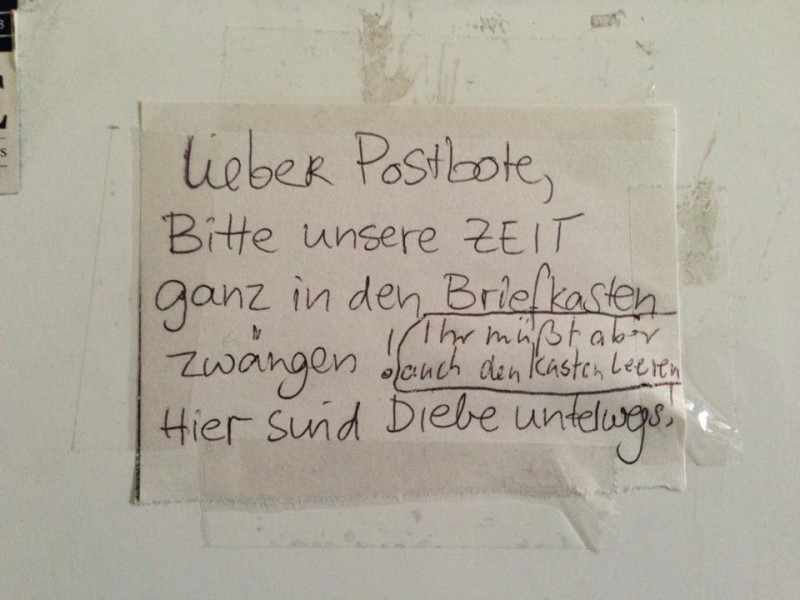 Lieber Postbote,
Bitte unsere ZEIT
ganz in den Briefkasten
zwängen !
Ihr müßt aber
auch den Kasten leeren
Hier sind Diebe unterwegs.